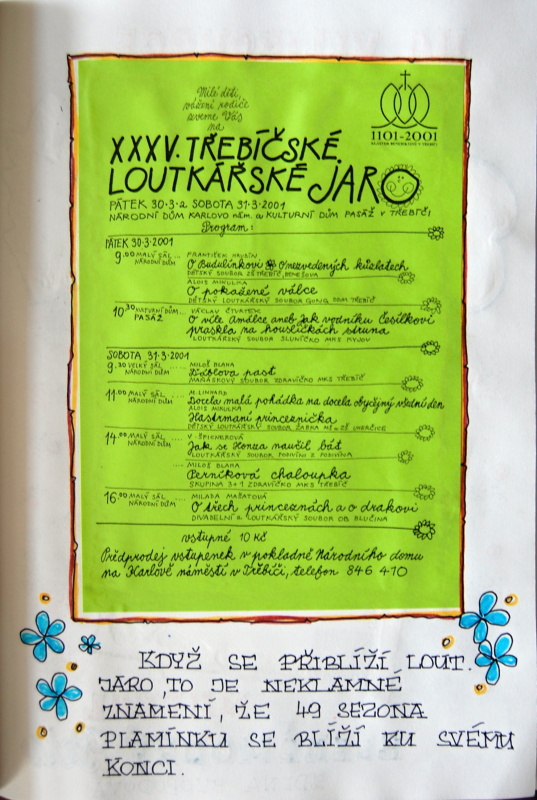 Milé děti,
vážení rodiče
zveme Vás
na
1101-2001
XXXV. TŘEBÍČSKÉ
LOUTKÁŘSKÉ JARO
PÁTEK 30.3. a SOBOTA 31.3.2001
NÁRODNÍ DŮM KARLOVO nám. a KULTURNÍ DŮM PASÁŽ v TŘEBÍČI
Program:
PÁTEK 30.3.2001
9.00 MALÝ SÁL... FRANTIŠEK HRUBÍN
NÁRODNÍ DŮM O Budulínkovi O nezvedených kůzlatech
DĚTSKÝ SOUBOR ZŠ TŘEBÍČ, BENEŠOVA
ALOIS MIKULKA
O pokažené válce
DĚTSKÝ LOUTKÁŘSKÝ SOUBOR GONG DDM TŘEBÍČ
10.30 KULTURNÍ DŮM... VÁCLAV ČTVRTEK
PASÁŽ O víle Amálce aneb Jak vodníku Česílkovi
praskla na housličkách struna
LOUTKÁŘSKÝ SOUBOR SLUNÍČKO MKS KYJOV
SOBOTA 31.3.2001
9.30 VELKÝ SÁL... MILOŠ BLÁHA
NÁRODNÍ DŮM Ďáblova past
MAŇÁSKOVÝ SOUBOR ZDRAVÍČKO MKS TŘEBÍČ
11.00 MALÝ SÁL... M. LINHARD
NÁRODNÍ DŮM Docela malá pohádka na docela obyčejný všední den
ALOIS MIKULKA
Hastrmaní princeznička
DĚTSKÝ LOUTKÁŘSKÝ SOUBOR
14.00 MALÝ SÁL...
NÁRODNÍ DŮM Jak se Honza naučil bát
LOUTKÁŘSKÝ SOUBOR PODIVÍNI Z PODIVÍNA
.... MILOŠ BLÁHA
Perníková chaloupka
SKUPINA 3+1 ZDRAVÍČKO MKS TŘEBÍČ
16.00 MALÝ SÁL... MILADA MAŠATOVÁ
NÁRODNÍ DŮM O třech princeznách a o drakovi
DIVADELNÍ a LOUTKÁŘSKÝ SOUBOR OB BLUČINA
vstupné 10 Kč
Předprodej vstupenek v pokladně Národního domu
na Karlově náměstí v Třebíči, telefon 846 410
KDYŽ SE PŘIBLÍŽÍ LOUT.
JARO, TO JE NEKLAMNÉ
ZNAMENÍ, ŽE 49 SEZONA
PLAMÍNKU SE BLÍŽÍ KU SVÉMU
KONCI.